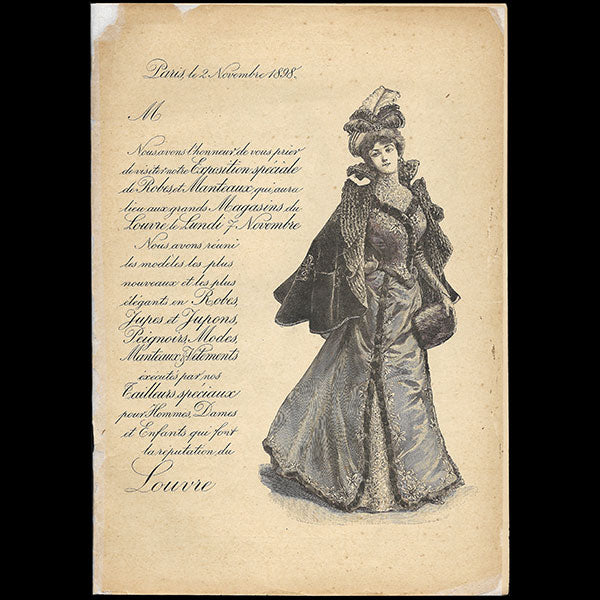 Paris, le 2 Novembre 1898.
M
Nous avons l'honneur de vous prier
de visiter notre Exposition spéciale
de Robes et Manteaux qui aura
lieu aux grands Magasins du
Louvre le Lundi 7 Novembre
Nous avons réuni
les modèles les plus
nouveaux et les plus
élégants en Robes,
Jupes et Jupons,
Peignoirs, Modes,
Manteaux & Vêtements
exécutés par nos
Tailleurs spéciaux
pour Hommes, Dames
et Enfants qui font
la réputation du
Louvre